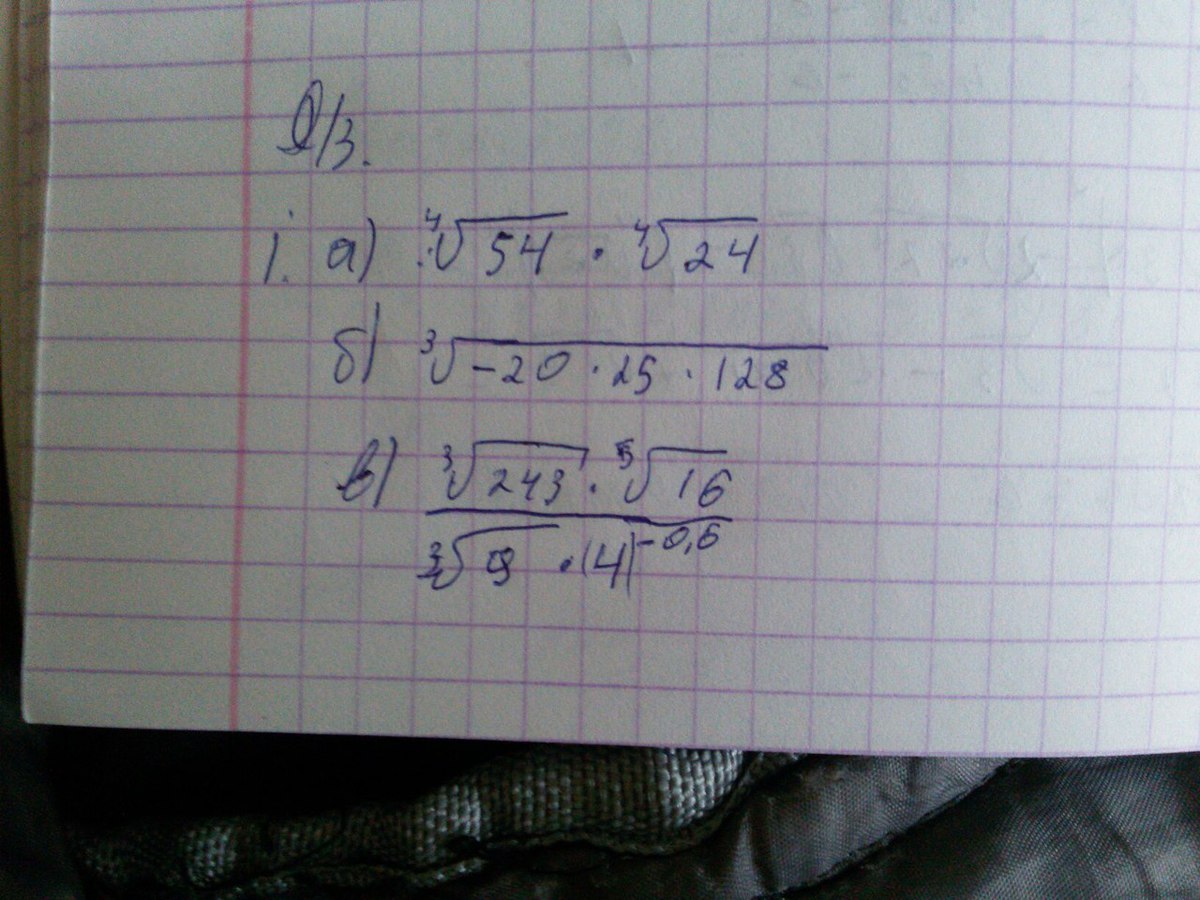 Д/З.
1. а) ⁴√54 · ⁴√24
б) ³√(-20 · 25 · 128)
в) (³√243 · ⁵√16) / (³√9 · (4)^(-0,6))